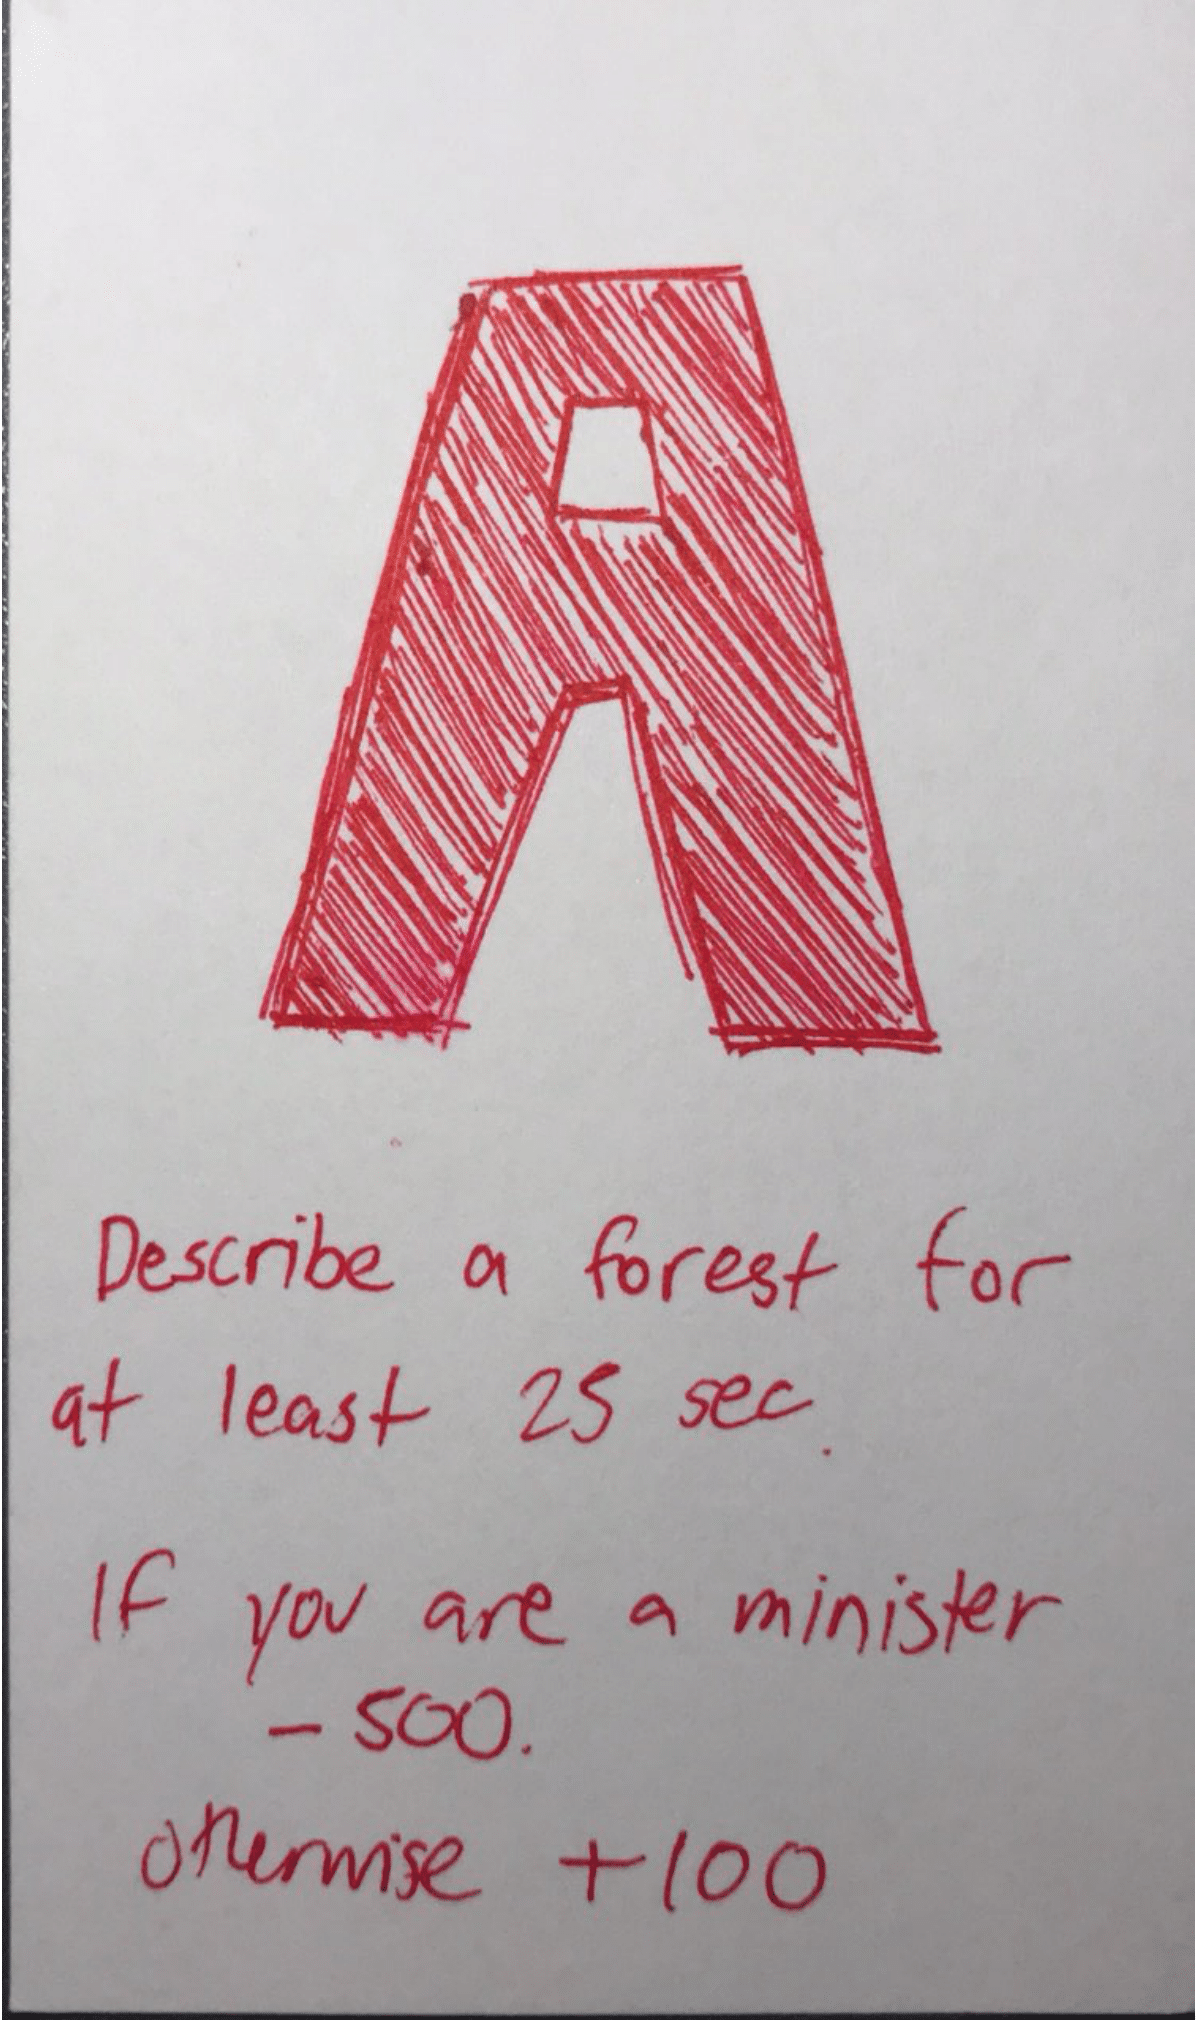 A
Describe a forest for
at least 25 sec.
If you are a minister
- 500.
otherwise +100